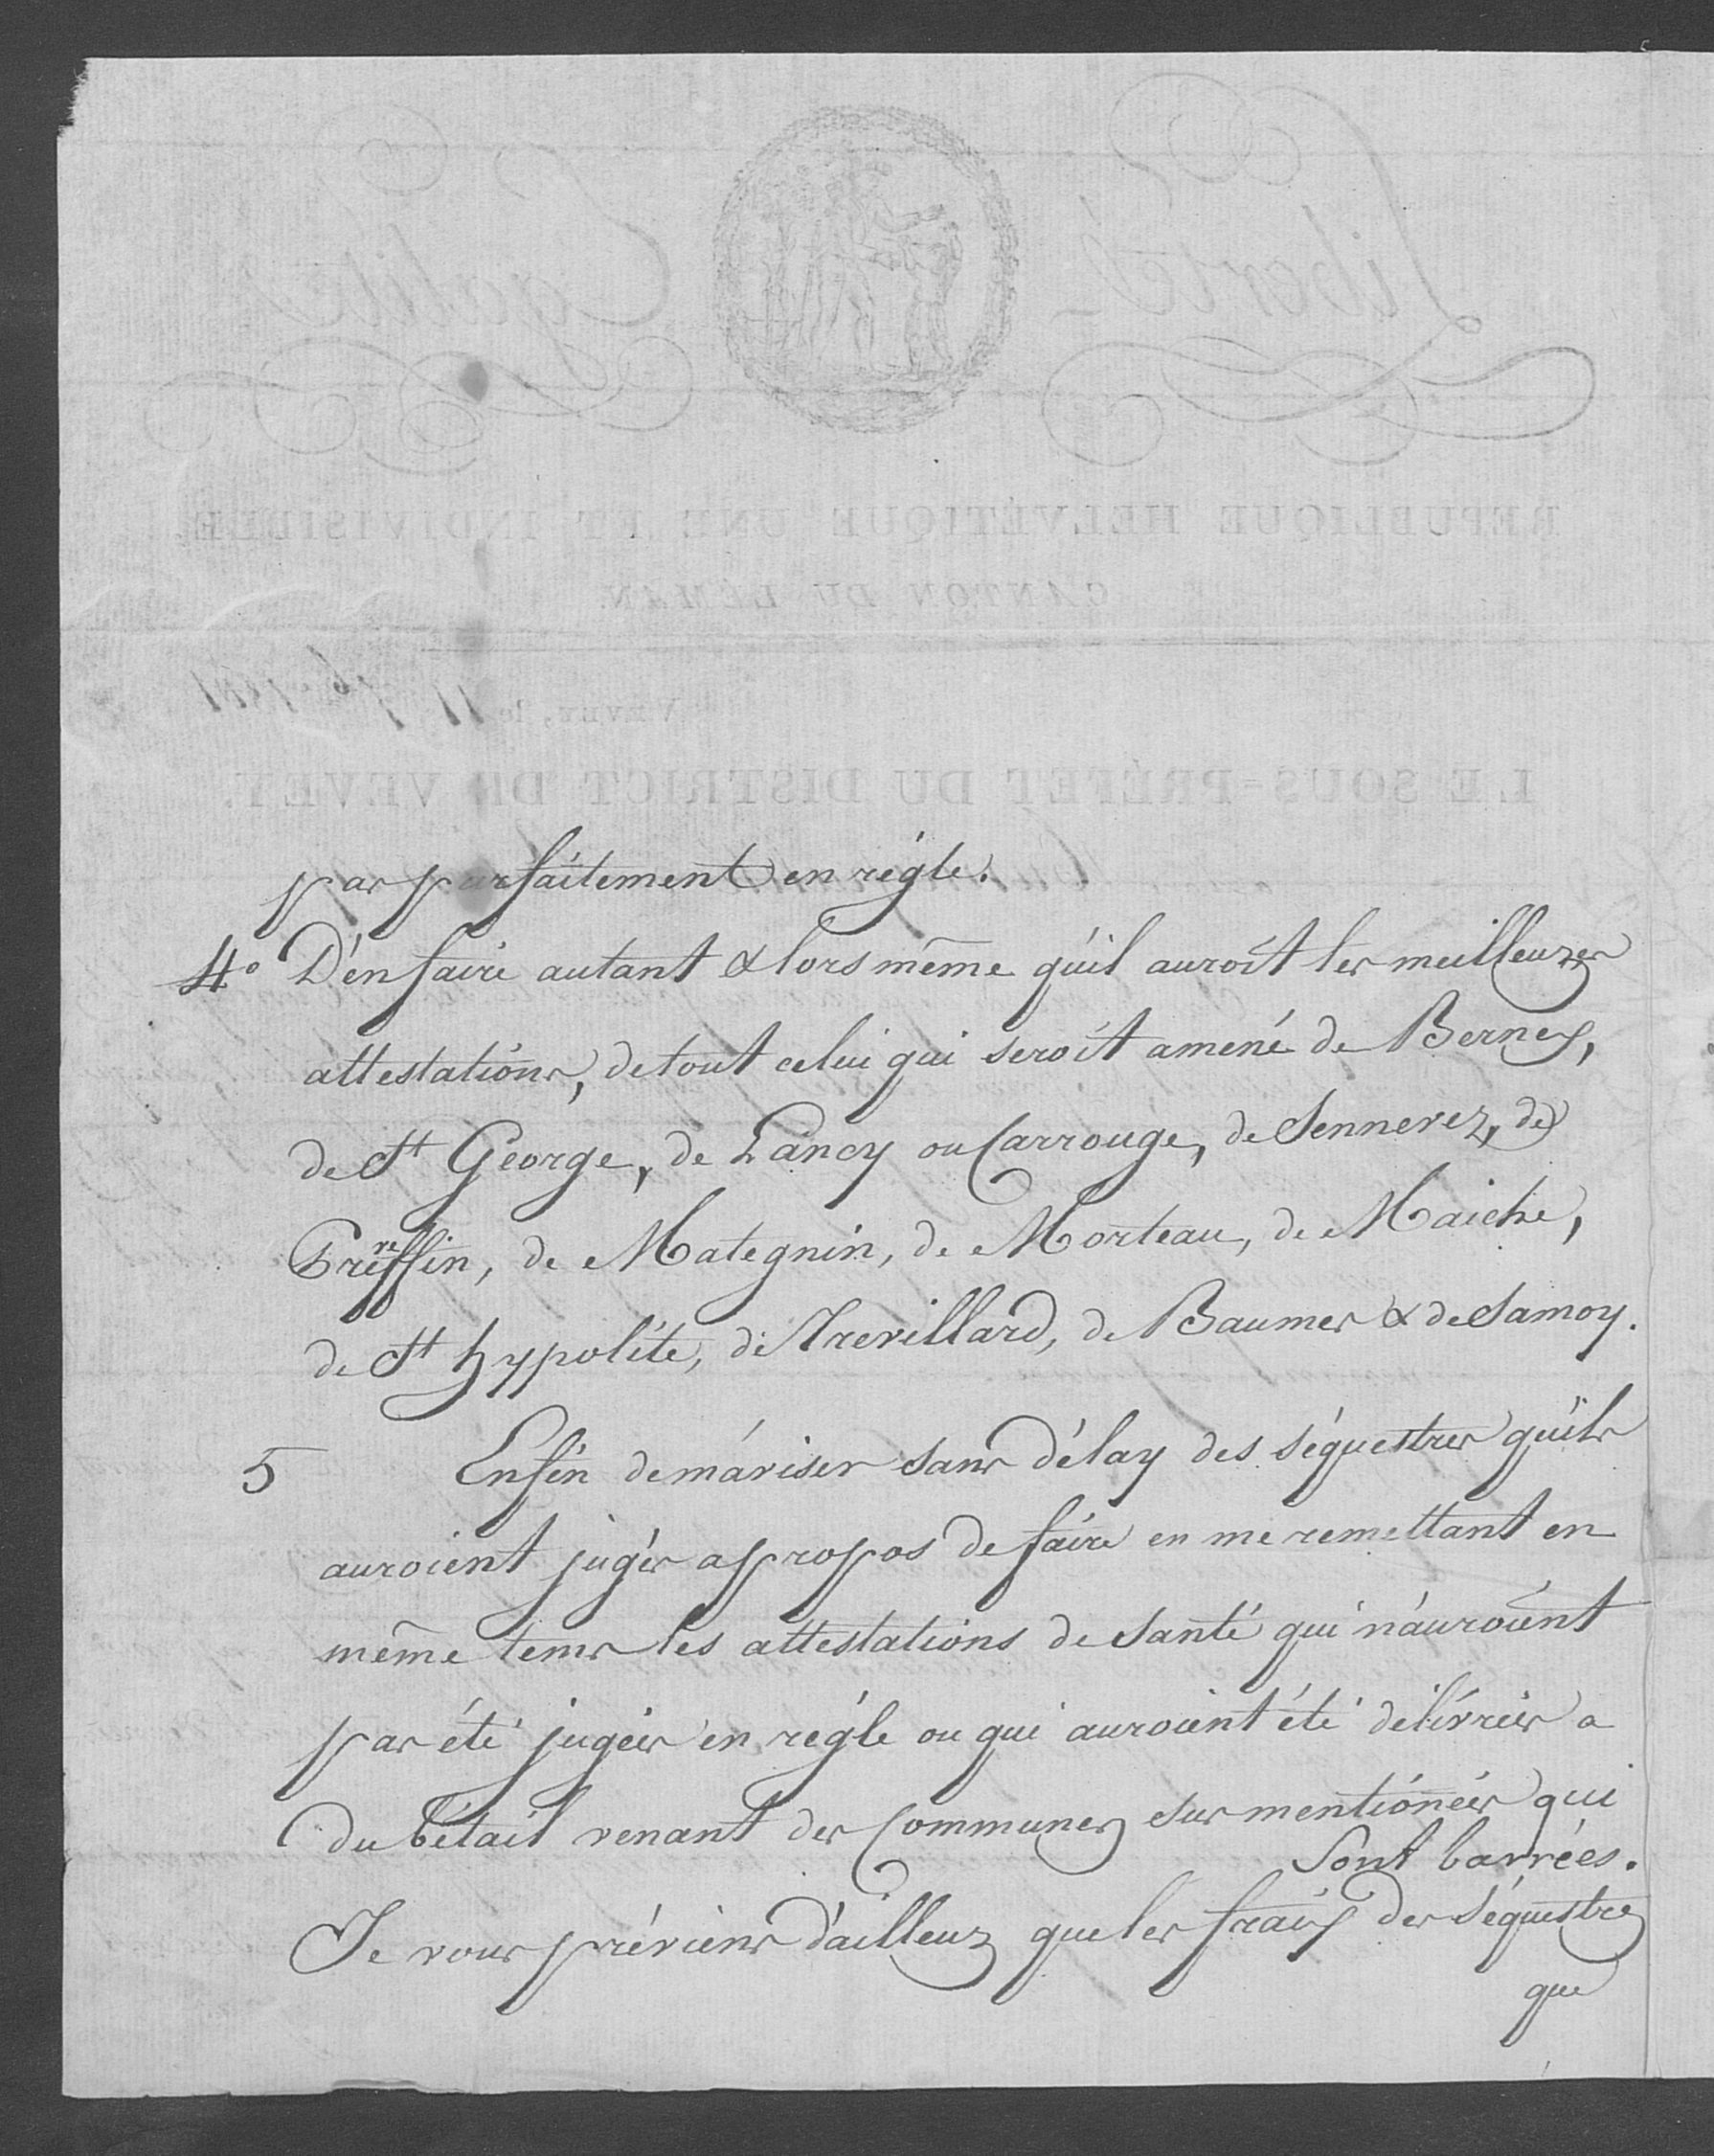 pas parfaitement en régle.
4° D'en faire autant & lors même qu'il auroit les meilleures
attestations, de tout celui qui seroit amené de Bernex,
de St George, de Lancy ou Carrouge, de Sennevez, de
Pressin, de Mategnin, de Morteau, de Maiche,
de St hypolite, de Trevillard, de Baumes & de Samoy.
5 Enfin de m'aviser sans délay des séquestres qu'ils
auroient jugés apropos de faire en me remettant en
même tems les attestations de Santé qui n'auroient
pas été jugées en régle ou qui auroient été délivrées a
du bétail venant des Communes sus mentionées qui
Sont barrées.
Je vous préviens d'ailleurs que les frais des Séquestres
que